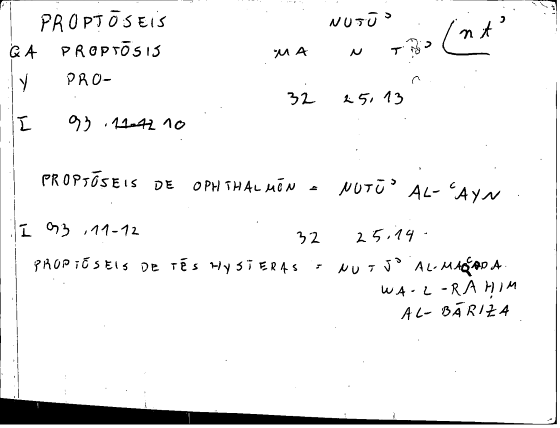 PROPTŌSEIS NUTŪʾ (ntʾ
GA PROPTŌSIS MA N T
Y PRO-
32 25.13
I 93 .11-12 10
PROPTŌSEIS DE OPHTHALMŌN = NUTŪʾ AL-ʿAYN
I 93 .11-12 32 25.14.
PROPTŌSEIS DE TĒS HYSTERAS = NUTŪʾ AL-MAQʿADA
WA-L-RAḤIM
AL-BĀRIZA